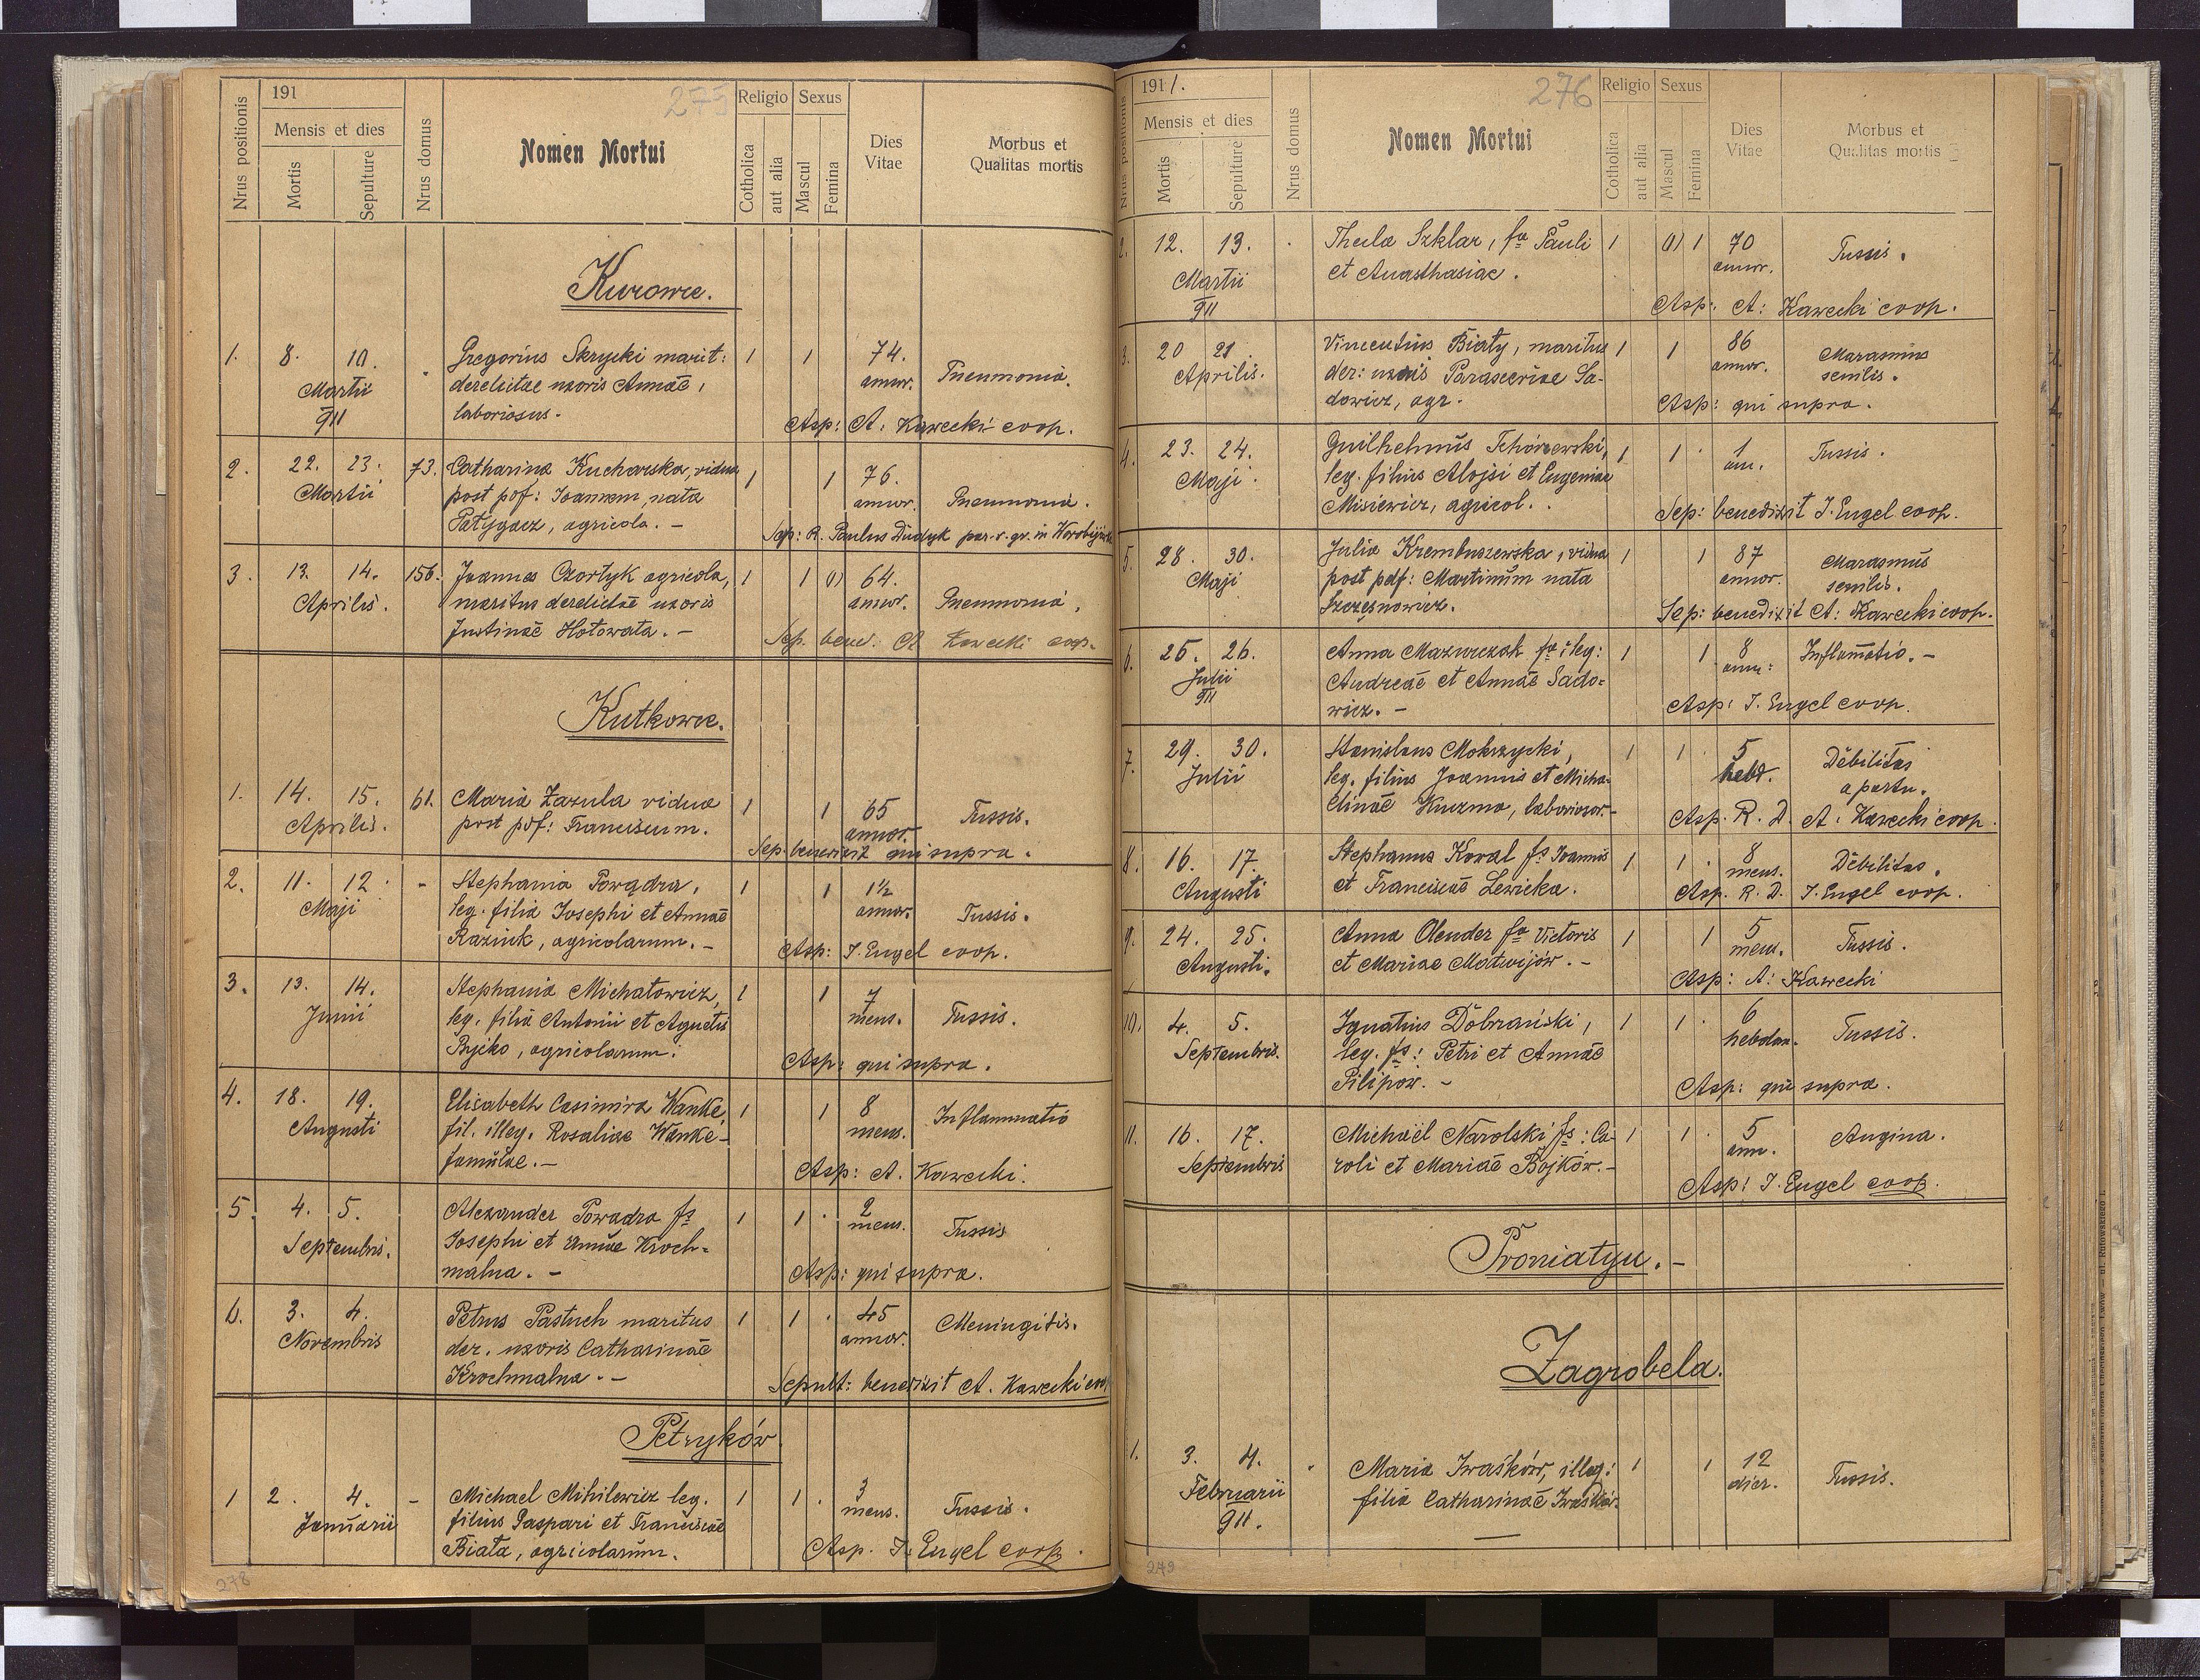 191
275
Nrus positionis
Mensis et dies
Mortis
Sepulture
Nrus domus
Nomen Mortui
Religio
Cotholica
aut alia
Sexus
Mascul
Femina
Dies Vitae
Morbus et
Qualitas mortis
Kurowce.
1. 8. 10. Gregorius Skrycki marit: 1 1 74.
Martii derelictae uxoris Annae, annor. Pneumonia.
911 laboriosus.
Asp: A. Kawecki coop.
2. 22. 23. 73. Catharina Kucharska, vidua 1 1 76.
Martii post pof: Ioannem, nata annor. Pneumonia.
Patygacz, agricola. -
Sep: R. Paulus Dudyk par. r. gr. in
3. 13. 14. 156. Joannes Czortyk agricola, 1 1 (1) 64.
Aprilis. maritus derelictae uxoris annor. Pneumonia,
Justinae Hotowata. -
Sep. bened. A Kawecki coop.
Kutkowce.
1. 14. 15. 61. Maria Zazula vidua 1 1 65 Tussis.
Aprilis. post pdf: Franciscum. annor.
Sep. benedixit qui supra.
2. 11. 12. - Stephania Powądra, 1 1 1½
Maji leg. filia Josephi et Annae annor. Tussis.
Raziuk, agricolarum. -
Asp: J. Engel coop.
3. 13. 14. Stephania Michałowicz, 1 1 7
Junii leg. filia Antonii et Agnetis mens. Tussis.
Byjko, agricolarum.
Asp: qui supra.
4. 18. 19. Elisabeth Casimira Wanke 1 1 8 Inflammatio
Augusti fil. illeg. Rosaliae Wanke - mens.
famulae. -
Asp: A. Kawecki.
5. 4. 5. Alexander Powadra fs 1 1 2
Septembris. Josephi et Annae Kroch- mens. Tussis
malna. -
Asp: qui supra.
6. 3. 4. Petrus Pastuch maritus 1 1 45 Meningitis.
Novembris der. uxoris Catharinae annor.
Krochmalna. -
Sepult: benedixit A. Kawecki
Petryków
1 2. 4. - Michael Mihilewicz leg. 1 1 3
Januarii filius Gaspari et Franciscae mens. Tussis.
Biała, agricolarum.
Asp. J. Engel coop.
278
1911.
276
Nrus positionis
Mensis et dies
Mortis
Sepulture
Nrus domus
Nomen Mortui
Religio
Cotholica
aut alia
Sexus
Mascul
Femina
Dies Vitae
Morbus et
Qualitas mortis
2. 12. 13. Thecla Szklar, fa Pauli 1 (1) 1 70
Martii et Anasthasiae. annor. Tussis.
911 Asp: A: Kawecki coop.
3. 20 21. Vincentius Biały, maritus 1 1 86 Marasmus
Aprilis. der: uxoris Parascevae Sa- annor. senilis.
dowicz, agr. Asp: qui supra.
4. 23. 24. Guilhelmus Tchórzewski, 1 1 1 Tussis.
Maji. leg. filius Alojsi et Eugeniae an.
Misiewicz, agricol.
Sep: benedixit J. Engel coop.
5. 28. 30. Julia Krembuszewska, vidua 1 1 87 Marasmus
Maji post pdf: Martinum nata annor. senilis.
Szczęsnowicz.
Sep: benedixit A: Kawecki coop.
6. 25. 26. Anna Mazurczak fa: leg: 1 1 8 Inflamatio. -
Julii Andreae et Annae Sado- ann:
911 wicz. - Asp: J. Engel coop.
7. 29. 30. Stanislaus Mokrzycki, 1 1 5 Debilitas
Julii leg. filius Joannis et Micha- hebd. a partu.
elinae Kuzma, laborioror. -
Asp. R. D. A. Kawecki coop.
8. 16. 17. Stephanus Koval fs Ioannis 1 1 8 Debilitas.
Augusti et Franciscae Lewicka. mens.
Asp. R. D. J. Engel coop.
9. 24. 25. Anna Olender fa Victoris 1 1 5 Tussis.
Augusti. et Mariae Matwijów. - mens.
Asp: A: Kawecki
10. 4. 5. Ignatius Dobrański, 1 1 6 Tussis.
Septembris. leg. fs: Petri et Annae hebdom.
Pilipów. -
Asp: qui supra.
11. 16. 17. Michaël Narolski fs: Ca- 1 1 5 Angina.
Septembris roli et Mariae Bojków. - ann.
Asp: J. Engel coop.
Proniatyn. -
Zagrobela.
1. 3. 4. Maria Iwaśków, illeg: 1 1 12
Februarii filia Catharinae Iwaśków dier. Tussis.
911.
279